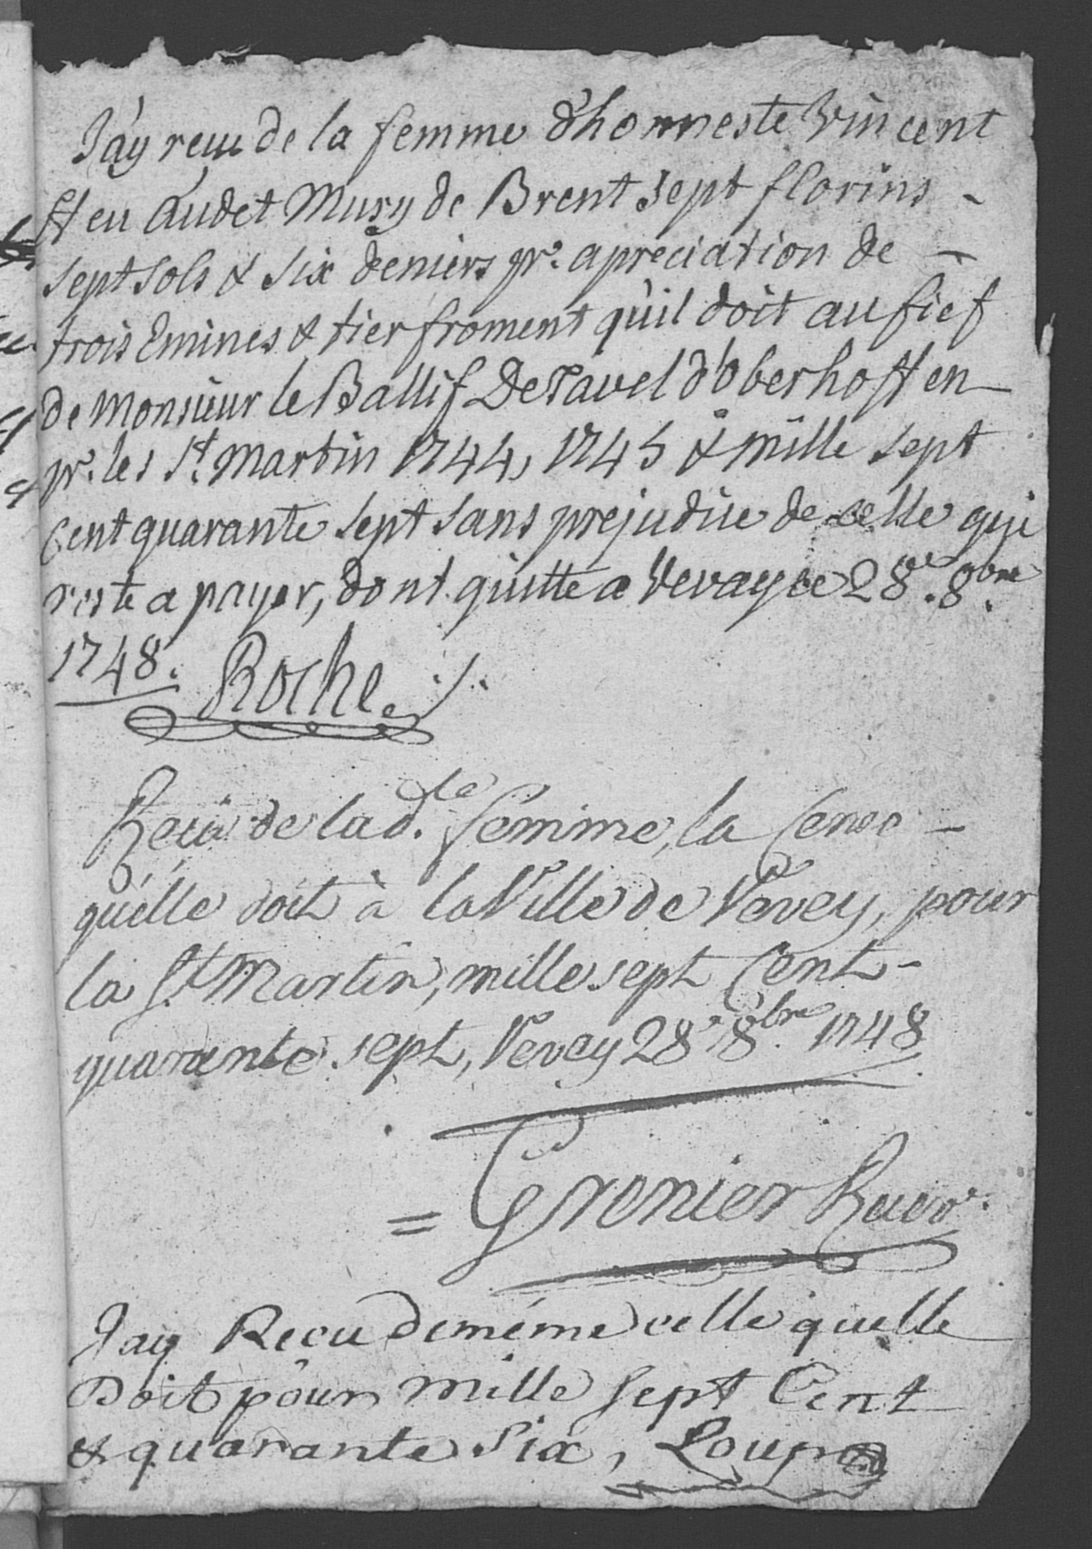 J'ay reçu de la femme d'honneste Vincent
ffeu Audet Mury de Brent sept florins -
sept sols & six deniers pr. apreciation de -
trois Emines & tier froment qu'il doit au fief
de Monsieur le Ballif DeTavel d'Oberhoffen
pr. les St. Martin 1744, 1745 & mille sept
Cent quarante sept sans prejudice de celle qui
reste a payer, dont quitte a Vevay ce 28e. 8bre
1748. Roche.
Reçû de lad.te femme, la Cense -
qu'elle doit à la Ville de Vevey, pour
la St. Martin, mille sept Cent -
quarante sept, Vevey 28e 8bre 1748
= Grenier Recvr.
Jay Recu de méme celle quelle
Doit pour mille sept Cent
& quarante Six, Loup